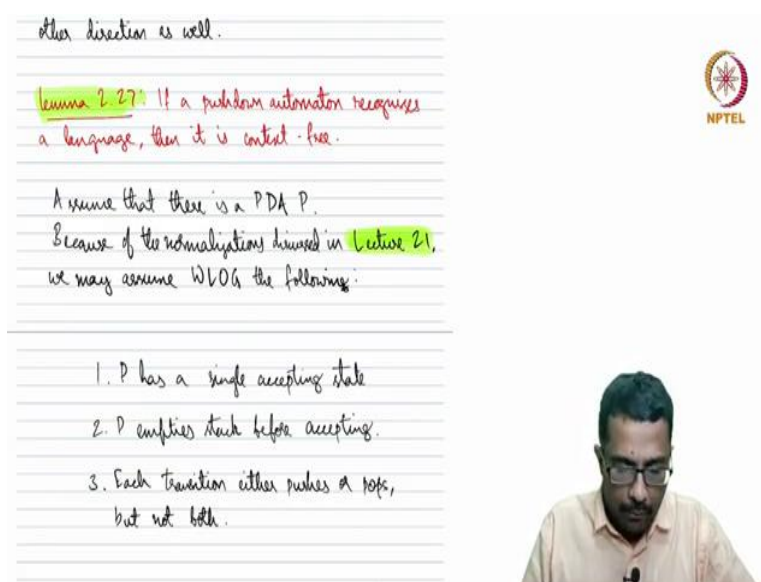 other direction as well.
Lemma 2.27: If a pushdown automaton recognizes
a language, then it is context-free.
Assume that there is a PDA P.
Because of the normalizations discussed in Lecture 21,
we may assume WLOG the following:
1. P has a single accepting state
2. P empties stack before accepting.
3. Each transition either pushes or pops,
but not both.
NPTEL